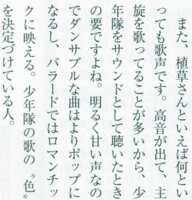 また、植草さんといえば何とい
っても歌声です。高音が出て、主
旋を歌ってることが多いから、少
年隊をサウンドとして聴いたとき
の要ですよね。明るく甘い声なの
でダンサブルな曲はよりポップに
なるし、バラードではロマンチッ
クに映える。少年隊の歌の〝色〟
を決定づけている人。